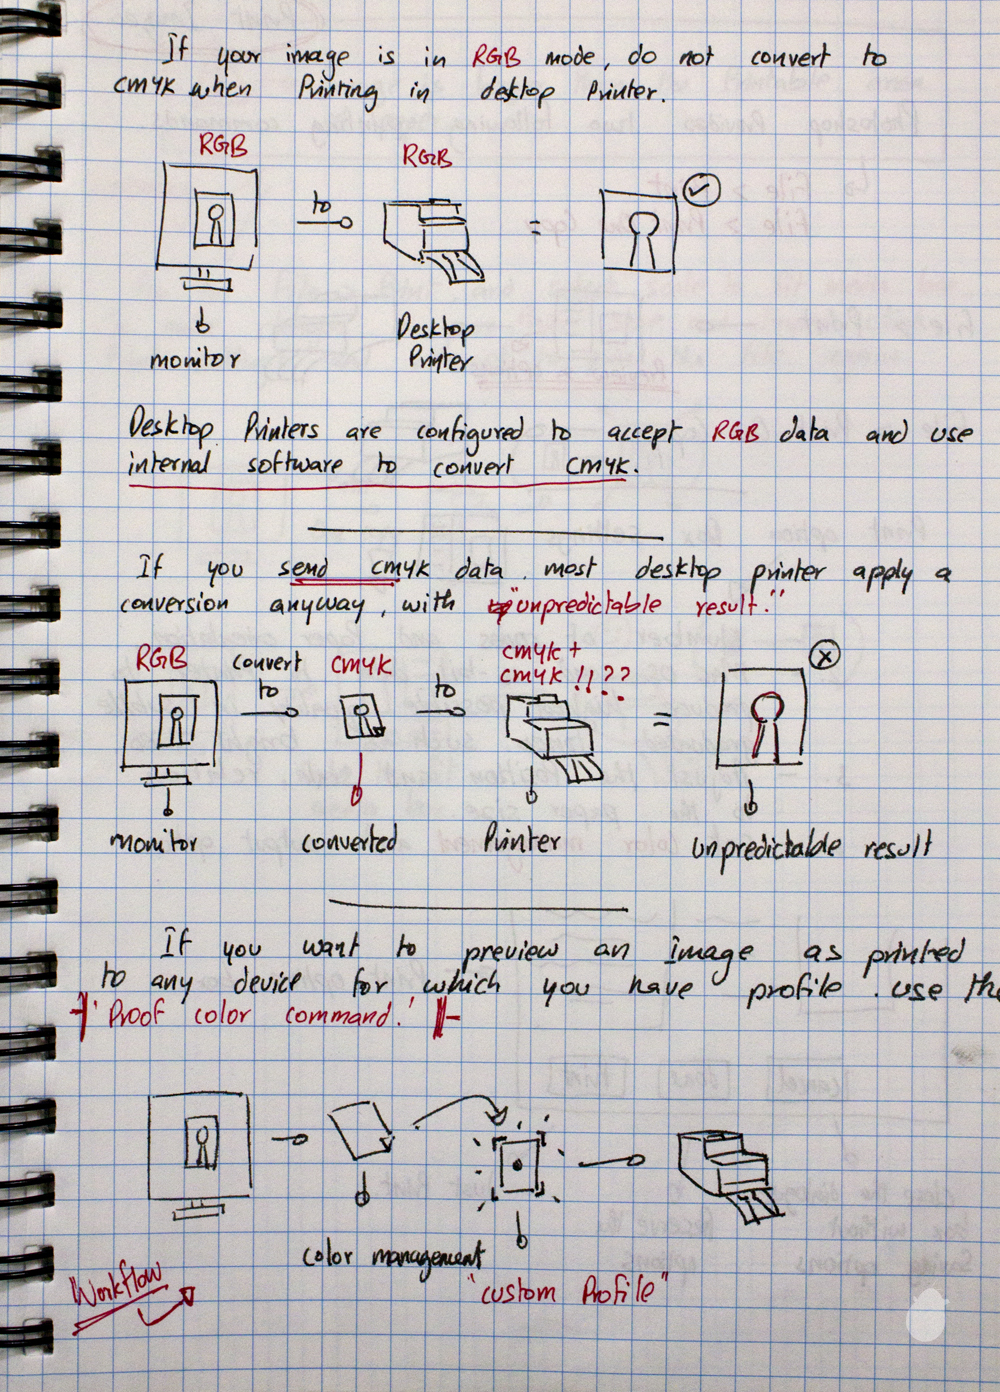 If your image is in RGB mode, do not convert to
CMYK when Printing in desktop Printer.
RGB
RGB
to
=
monitor
Desktop
Printer
Desktop Printers are configured to accept RGB data and use
internal software to convert CMYK.
If you send CMYK data, most desktop printer apply a
conversion anyway, with "unpredictable result."
RGB
convert
to
CMYK
to
CMYK +
CMYK !!??
=
monitor
converted
Printer
unpredictable result
If you want to preview an image as printed
to any device for which you have profile. use the
'Proof color command.'
color management
"custom Profile"
Workflow